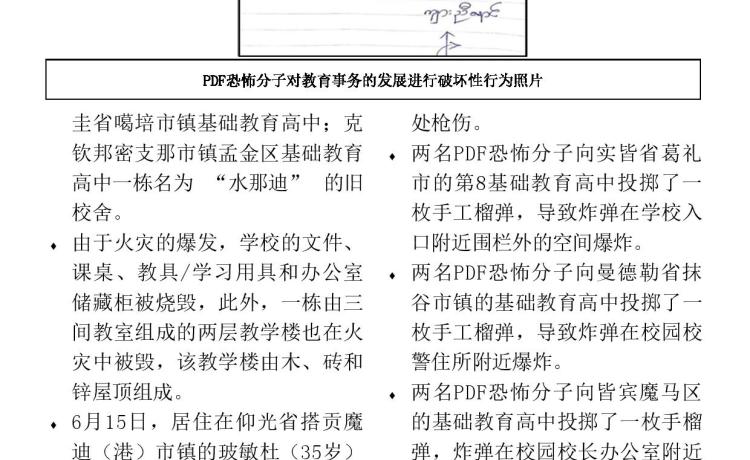 ကျားညီနောင်
PDF恐怖分子对教育事务的发展进行破坏性行为照片
圭省噶培市镇基础教育高中；克
钦邦密支那市镇孟金区基础教育
高中一栋名为 “水那迪” 的旧
校舍。
⬧ 由于火灾的爆发，学校的文件、
课桌、教具/学习用具和办公室
储藏柜被烧毁，此外，一栋由三
间教室组成的两层教学楼也在火
灾中被毁，该教学楼由木、砖和
锌屋顶组成。
⬧ 6月15日，居住在仰光省搭贡魔
迪（港）市镇的玻敏杜（35岁）
处枪伤。
⬧ 两名PDF恐怖分子向实皆省葛礼
市的第8基础教育高中投掷了一
枚手工榴弹，导致炸弹在学校入
口附近围栏外的空间爆炸。
⬧ 两名PDF恐怖分子向曼德勒省抹
谷市镇的基础教育高中投掷了一
枚手工榴弹，导致炸弹在校园校
警住所附近爆炸。
⬧ 两名PDF恐怖分子向皆宾魔马区
的基础教育高中投掷了一枚手榴
弹，炸弹在校园校长办公室附近